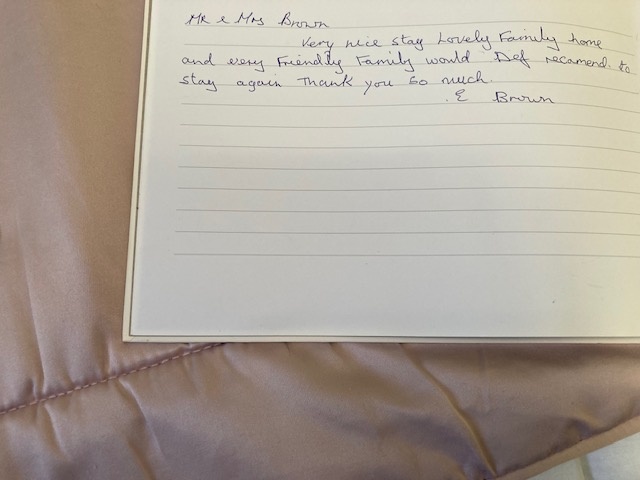 Mr & Mrs Brown
Very nice stay Lovely Family home
and every Friendly Family would Def recamend. to
stay again Thank you so much.
E Brown